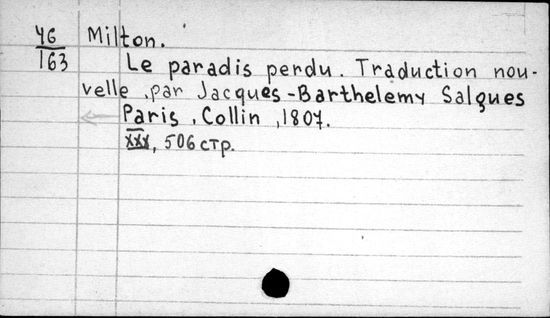 46 Milton.
163 Le paradis perdu. Traduction nou-
velle, par Jacques-Barthelemy Salgues
Paris, Collin, 1807.
XXX, 506 стр.